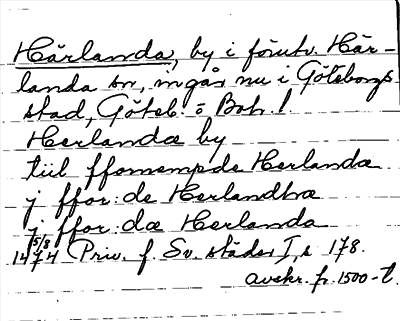 Härlanda, by i förutv. Här-
landa sn, ingår nu i Göteborgs
stad, Göteb. o Boh. l.
Herlanda by
tiil ffornempde Herlanda
j ffor:de Herlandha
j ffor:da Herlanda
14 5/8 74 Priv. f. Sv. städer I, s 178.
avskr. fr. 1500-t.